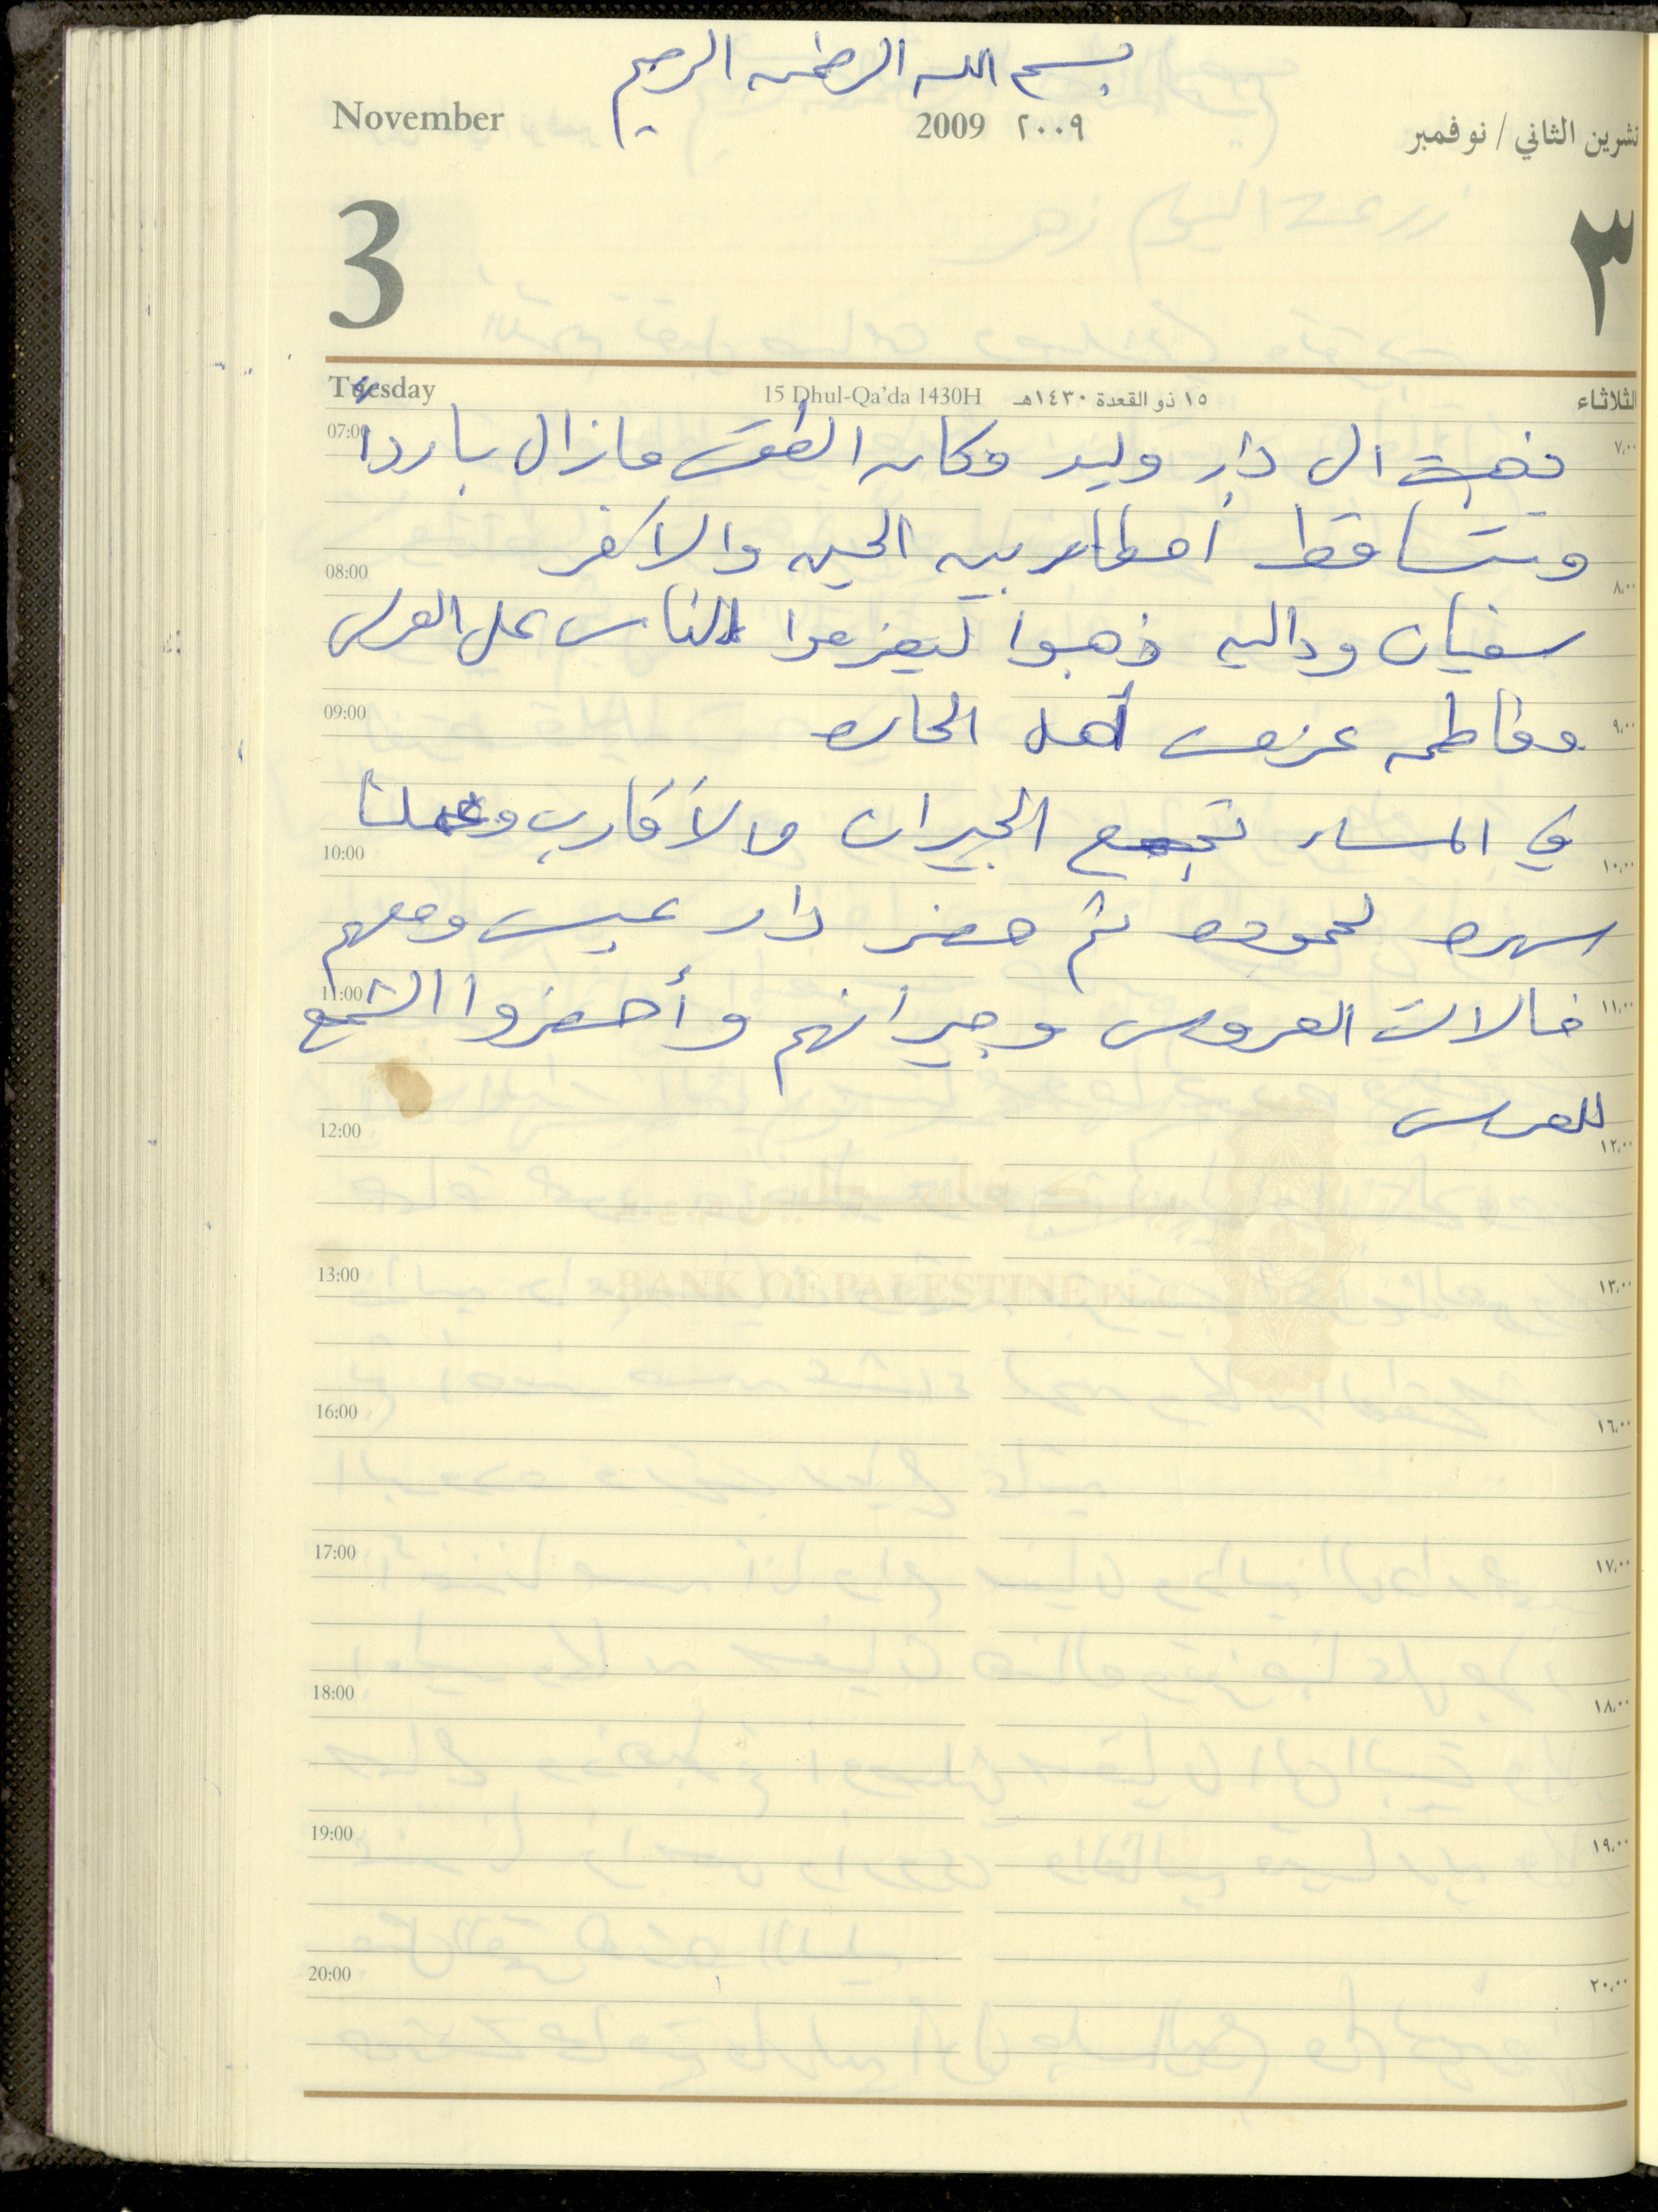 بسم الله الرحمن الرحيم
November 2009 ٢٠٠٩ تشرين الثاني / نوفمبر
3 ٣
Tuesday 15 Dhul-Qa'da 1430H ١٥ ذو القعدة ١٤٣٠هـ الثلاثاء
07:00 ٧,٠٠
ذهبت الى دار وليد وكان الطقس مازال بارداً
وتتساقط أمطار بين الحين والاخر
08:00 ٨,٠٠
سفيان وداليه ذهبوا ليعزموا الناس على العرس
09:00 ٩,٠٠
وفاطمه عزمت أهل الحاره
في المساء تجمع الجيران والأقارب وعملنا
10:00 ١٠,٠٠
سهره لحموده ثم حضر دار عيسى ومعهم
11:00 ١١,٠٠
خالات العروس وجيرانهم وأحضروا الشمع
للعرس
12:00 ١٢,٠٠
13:00 ١٣,٠٠
BANK OF PALESTINE PLC
16:00 ١٦,٠٠
17:00 ١٧,٠٠
18:00 ١٨,٠٠
19:00 ١٩,٠٠
20:00 ٢٠,٠٠